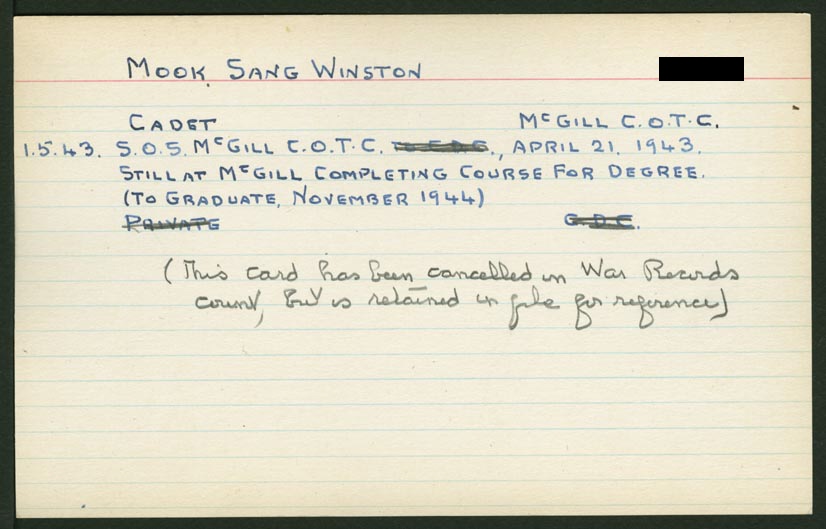 MOOK, SANG WINSTON
CADET McGILL C.O.T.C.
1.5.43. S.O.S. McGILL C.O.T.C. ., APRIL 21, 1943.
STILL AT McGILL COMPLETING COURSE FOR DEGREE.
(TO GRADUATE, NOVEMBER 1944)
PRIVATE G.D.C.
(This card has been cancelled in War Records
count, but is retained in file for reference)